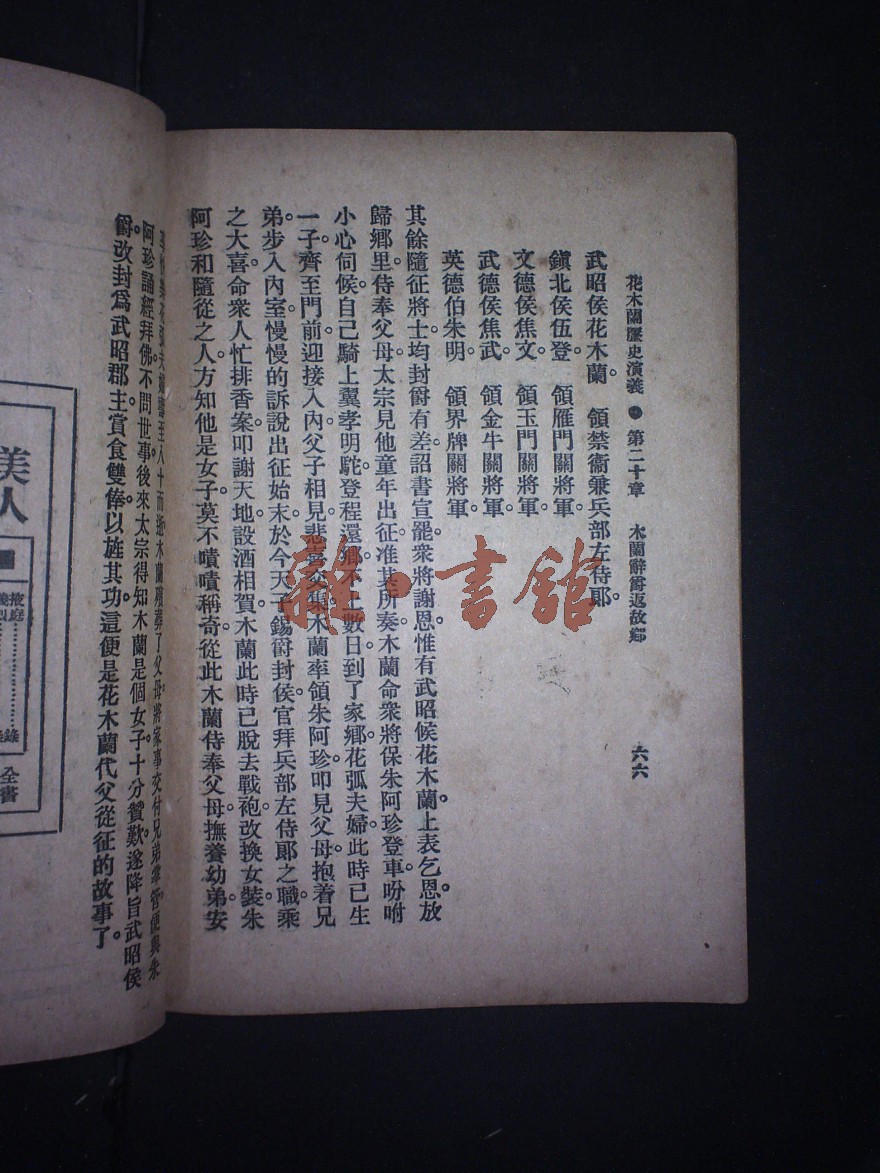 花木蘭歷史演義 第二十章 木蘭辭爵返故鄉 六六
武昭侯花木蘭 領禁衞兼兵部左侍郎。
鎭北侯伍登 領雁門關將軍。
文德侯焦文 領玉門關將軍。
武德侯焦武 領金牛關將軍。
英德伯朱明 領界牌關將軍。
其餘隨征將士均封爵有差詔書宣罷衆將謝恩惟有武昭侯花木蘭上表乞恩。放
歸鄉里侍奉父母太宗見他童年出征准其所奏木蘭命衆將保朱阿珍登車吩咐
小心伺候自己騎上翼孝明駝登程還鄉。不上數日到了家鄉花弧夫婦。此時已生
一子齊至門前迎接入內父子相見悲喜交集木蘭率領朱阿珍叩見父母。抱着兄
弟。步入內室慢慢的訴說出征始末於今天子錫爵封侯官拜兵部左侍郎之職乘
之大喜命衆人忙排香案叩謝天地設酒相賀。木蘭此時已脫去戰袍改換女裝朱
阿珍和隨從之人。方知他是女子莫不嘖嘖稱奇從此木蘭侍奉父母。撫養幼弟。安
夫婦壽至八十而逝木蘭殯葬了父母。將家事交付兄弟掌管便與朱
阿珍誦經拜佛不問世事後來太宗得知木蘭是個女子。十分贊歎遂降旨武昭侯
爵。改封爲武昭郡主賞食雙俸。以旌其功這便是花木蘭代父從征的故事了。
美人
掖庭
錄
全書
雜·書館